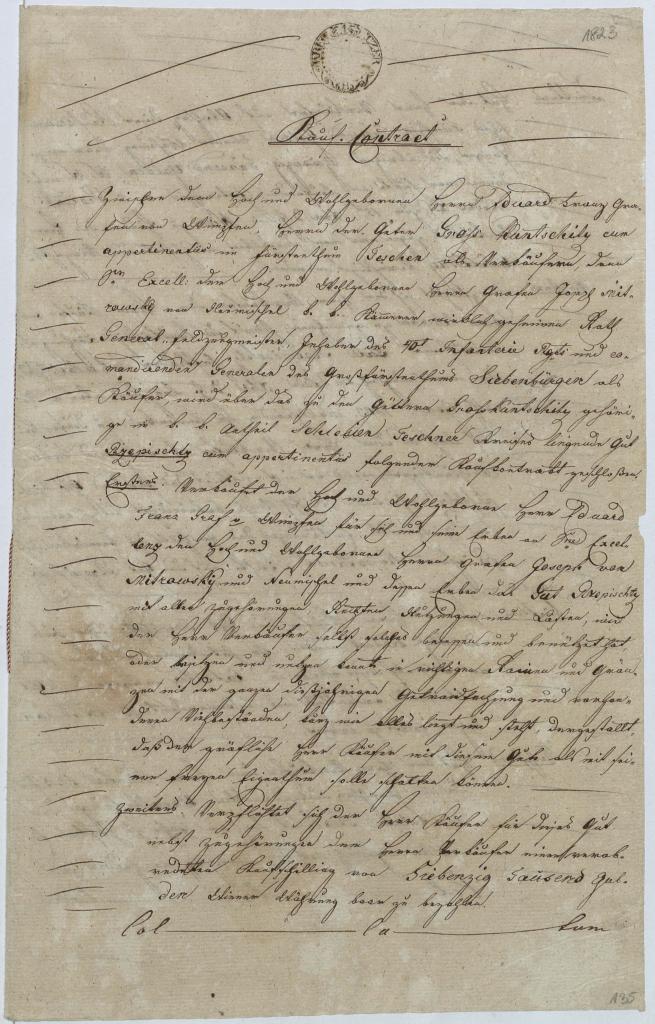 1823
Kauf-Contract
Zwischen dem Hoch und Wohlgebornen Herrn Eduard Franz Gra-
fen von Wimpfen, Herrn der Güter Groß Kuntschitz cum
appertinentiis im Fürstenthum Teschen als Verkäufern, dann
Sr Excell: den Hoch und Wohlgebornen Herrn Grafen Joseph Mit-
rowsky von Nemischel k. k. Kämmerer wirklich geheimen Rath
General-Feldzeugmeister, Inhaber des 40t Infanterie Rgts und co-
mandirender Generalen des Großfürstenthums Siebenbürgen als
Käufer, wird über das zu den Gütern Groß Kuntschitz gehöri-
ge in k. k. Antheil Schlesien Teschner Kreises liegende Gut
Rzepischtz cum appertinentiis folgender Kaufkontrakt geschloßen
Erstens: Verkaufet der Hoch und Wohlgeborne Herr Eduard
Franz Graf v Wimpfen für sich und seine Erben an Sne Excel-
lenz den Hoch und Wohlgebornen Herrn Grafen Joseph von
Mitrowsky und Nemischel und dessen Erben das Gut Rzepischtz
mit allen Zugehörungen, Rechten, Nutzungen und Lasten, wie
der Herr Verkäufer selbst solches besessen und benützet hat
oder besitzen und nutzen konnte, in richtigen Rainen und Grän-
zen mit der ganzen dießjährigen Getraidfechsung und vorhan-
denen Viehbeständen, kurz wie alles liegt und steht, dergestallt,
daß der gräfliche Herr Käufer mit diesem Gute als mit sei-
nem freyen Eigenthum solle schalten können.
Zweitens: Verpflichtet sich der Herr Käufer für dieses Gut
nebst Zugehörungen dem Herrn Verkäufer einen verab-
redeten Kaufschilling von Siebenzig Tausend Gul-
den Wiener Währung baar zu bezahlen.
Col la tum
135